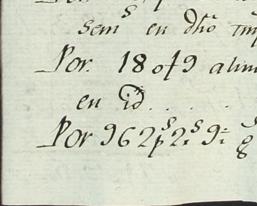 sem.s en dho tm
Por. 18 of 9 alim
en id. . . .
Por 962ps 2s 9